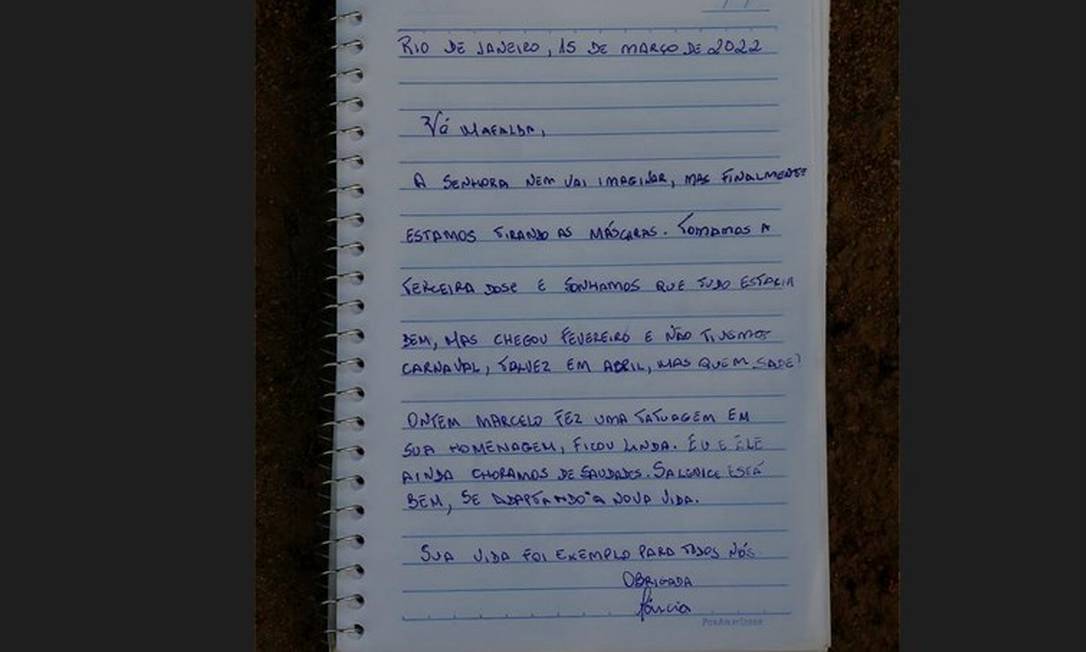 RIO DE JANEIRO, 15 DE MARÇO DE 2022
Vó MAFALDA,
A SENHORA NEM VAI IMAGINAR, MAS FINALMENTE
ESTAMOS TIRANDO AS MÁSCARAS. TOMAMOS A
TERCEIRA DOSE E SONHAMOS QUE TUDO ESTARIA
BEM, MAS CHEGOU FEVEREIRO E NÃO TIVEMOS
CARNAVAL, TALVEZ EM ABRIL, MAS QUEM SABE?
ONTEM MARCELO FEZ UMA TATUAGEM EM
SUA HOMENAGEM, FICOU LINDA. EU E ELE
AINDA CHORAMOS DE SAUDADES. SALENICE ESTÁ
BEM, SE ADAPTANDO A NOVA VIDA.
SUA VIDA FOI EXEMPLO PARA TODOS NÓS
OBRIGADA
Márcia